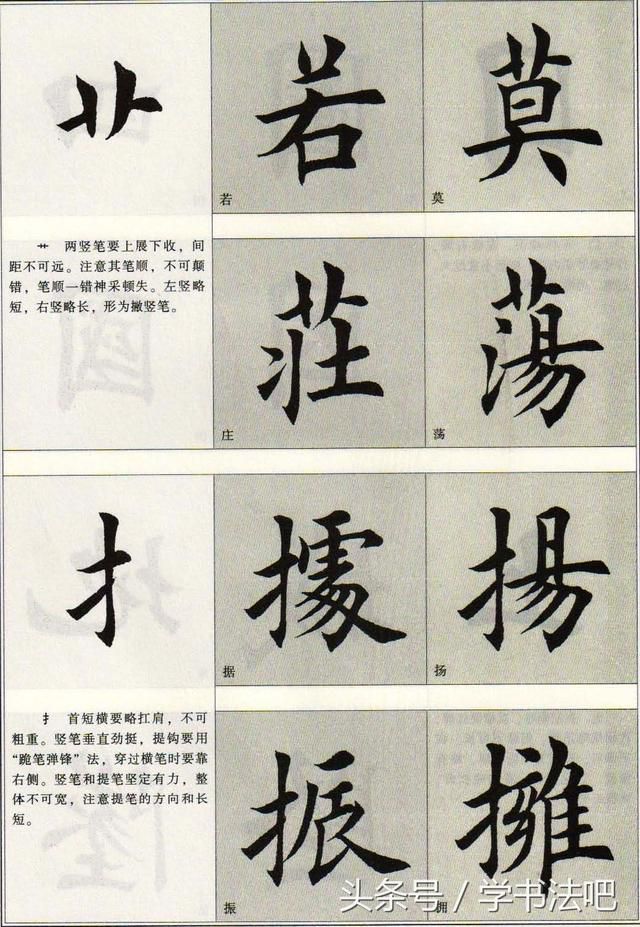 艹 若 莫
若 莫
艹 两竖笔要上展下收，间
距不可远。注意其笔顺，不可颠
错，笔顺一错神采顿失。左竖略
短，右竖略长，形为撇竖笔。
莊 蕩
庄 荡
扌 據 揚
据 扬
扌 首短横要略扛肩，不可
粗重。竖笔垂直劲挺，提钩要用
“跪笔弹锋”法，穿过横笔时要靠
右侧。竖笔和提笔坚定有力，整
体不可宽，注意提笔的方向和长
短。
振 擁
振 拥
头条号 / 学书法吧